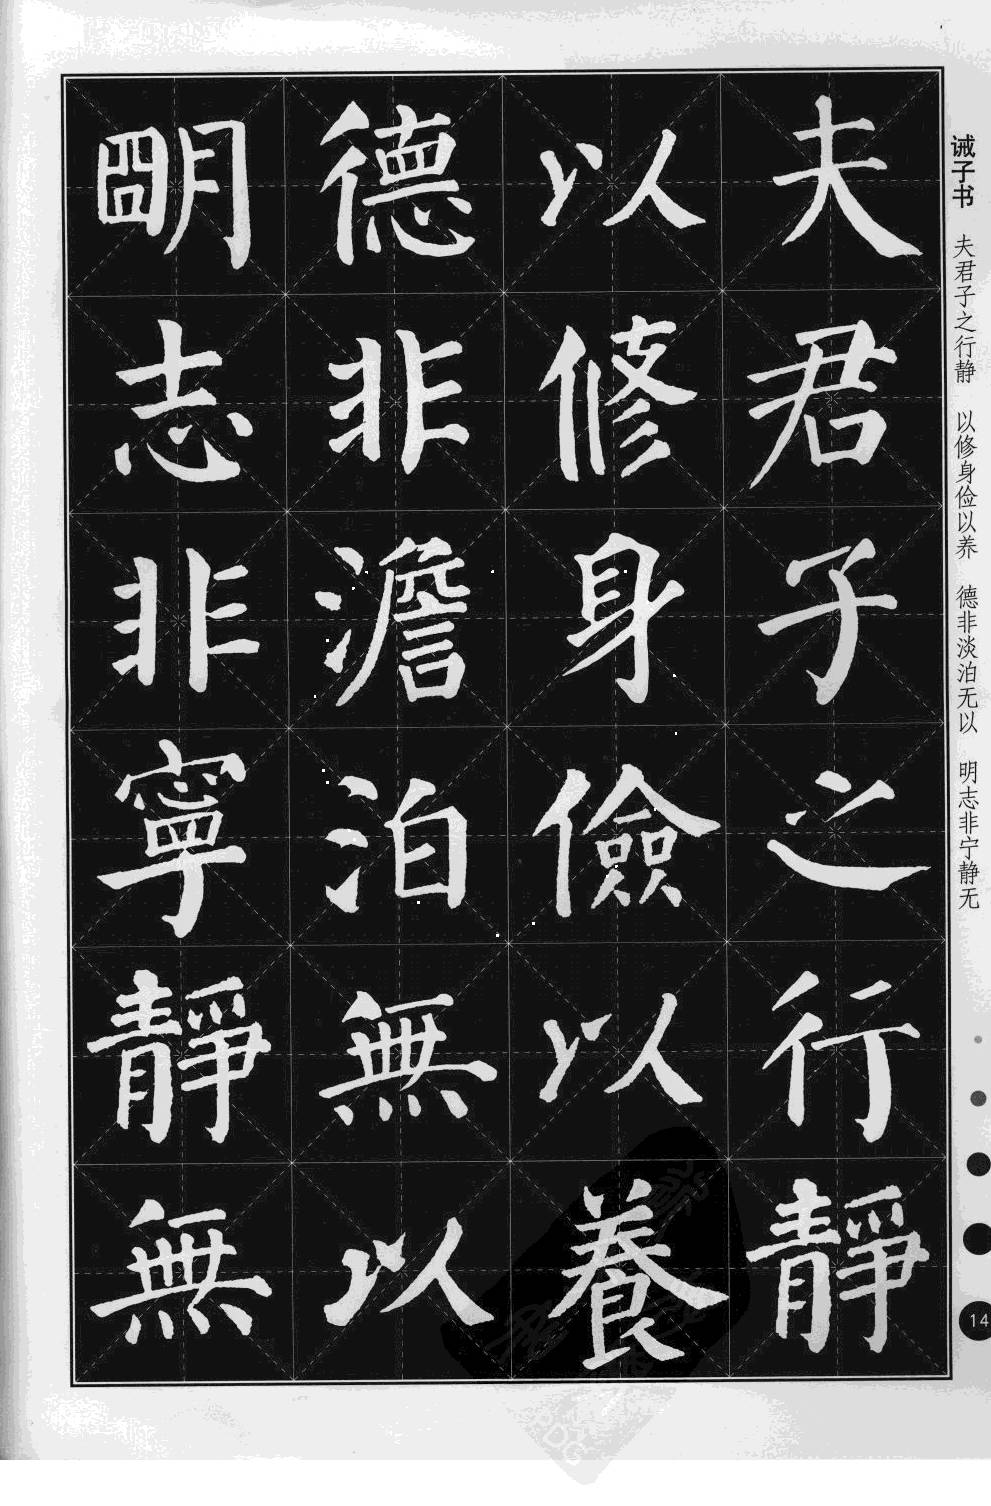 诫子书 夫君子之行静 以修身俭以养 德非淡泊无以 明志非宁静无
夫君子之行靜
以修身儉以養
德非澹泊無以
明志非寧靜無
14